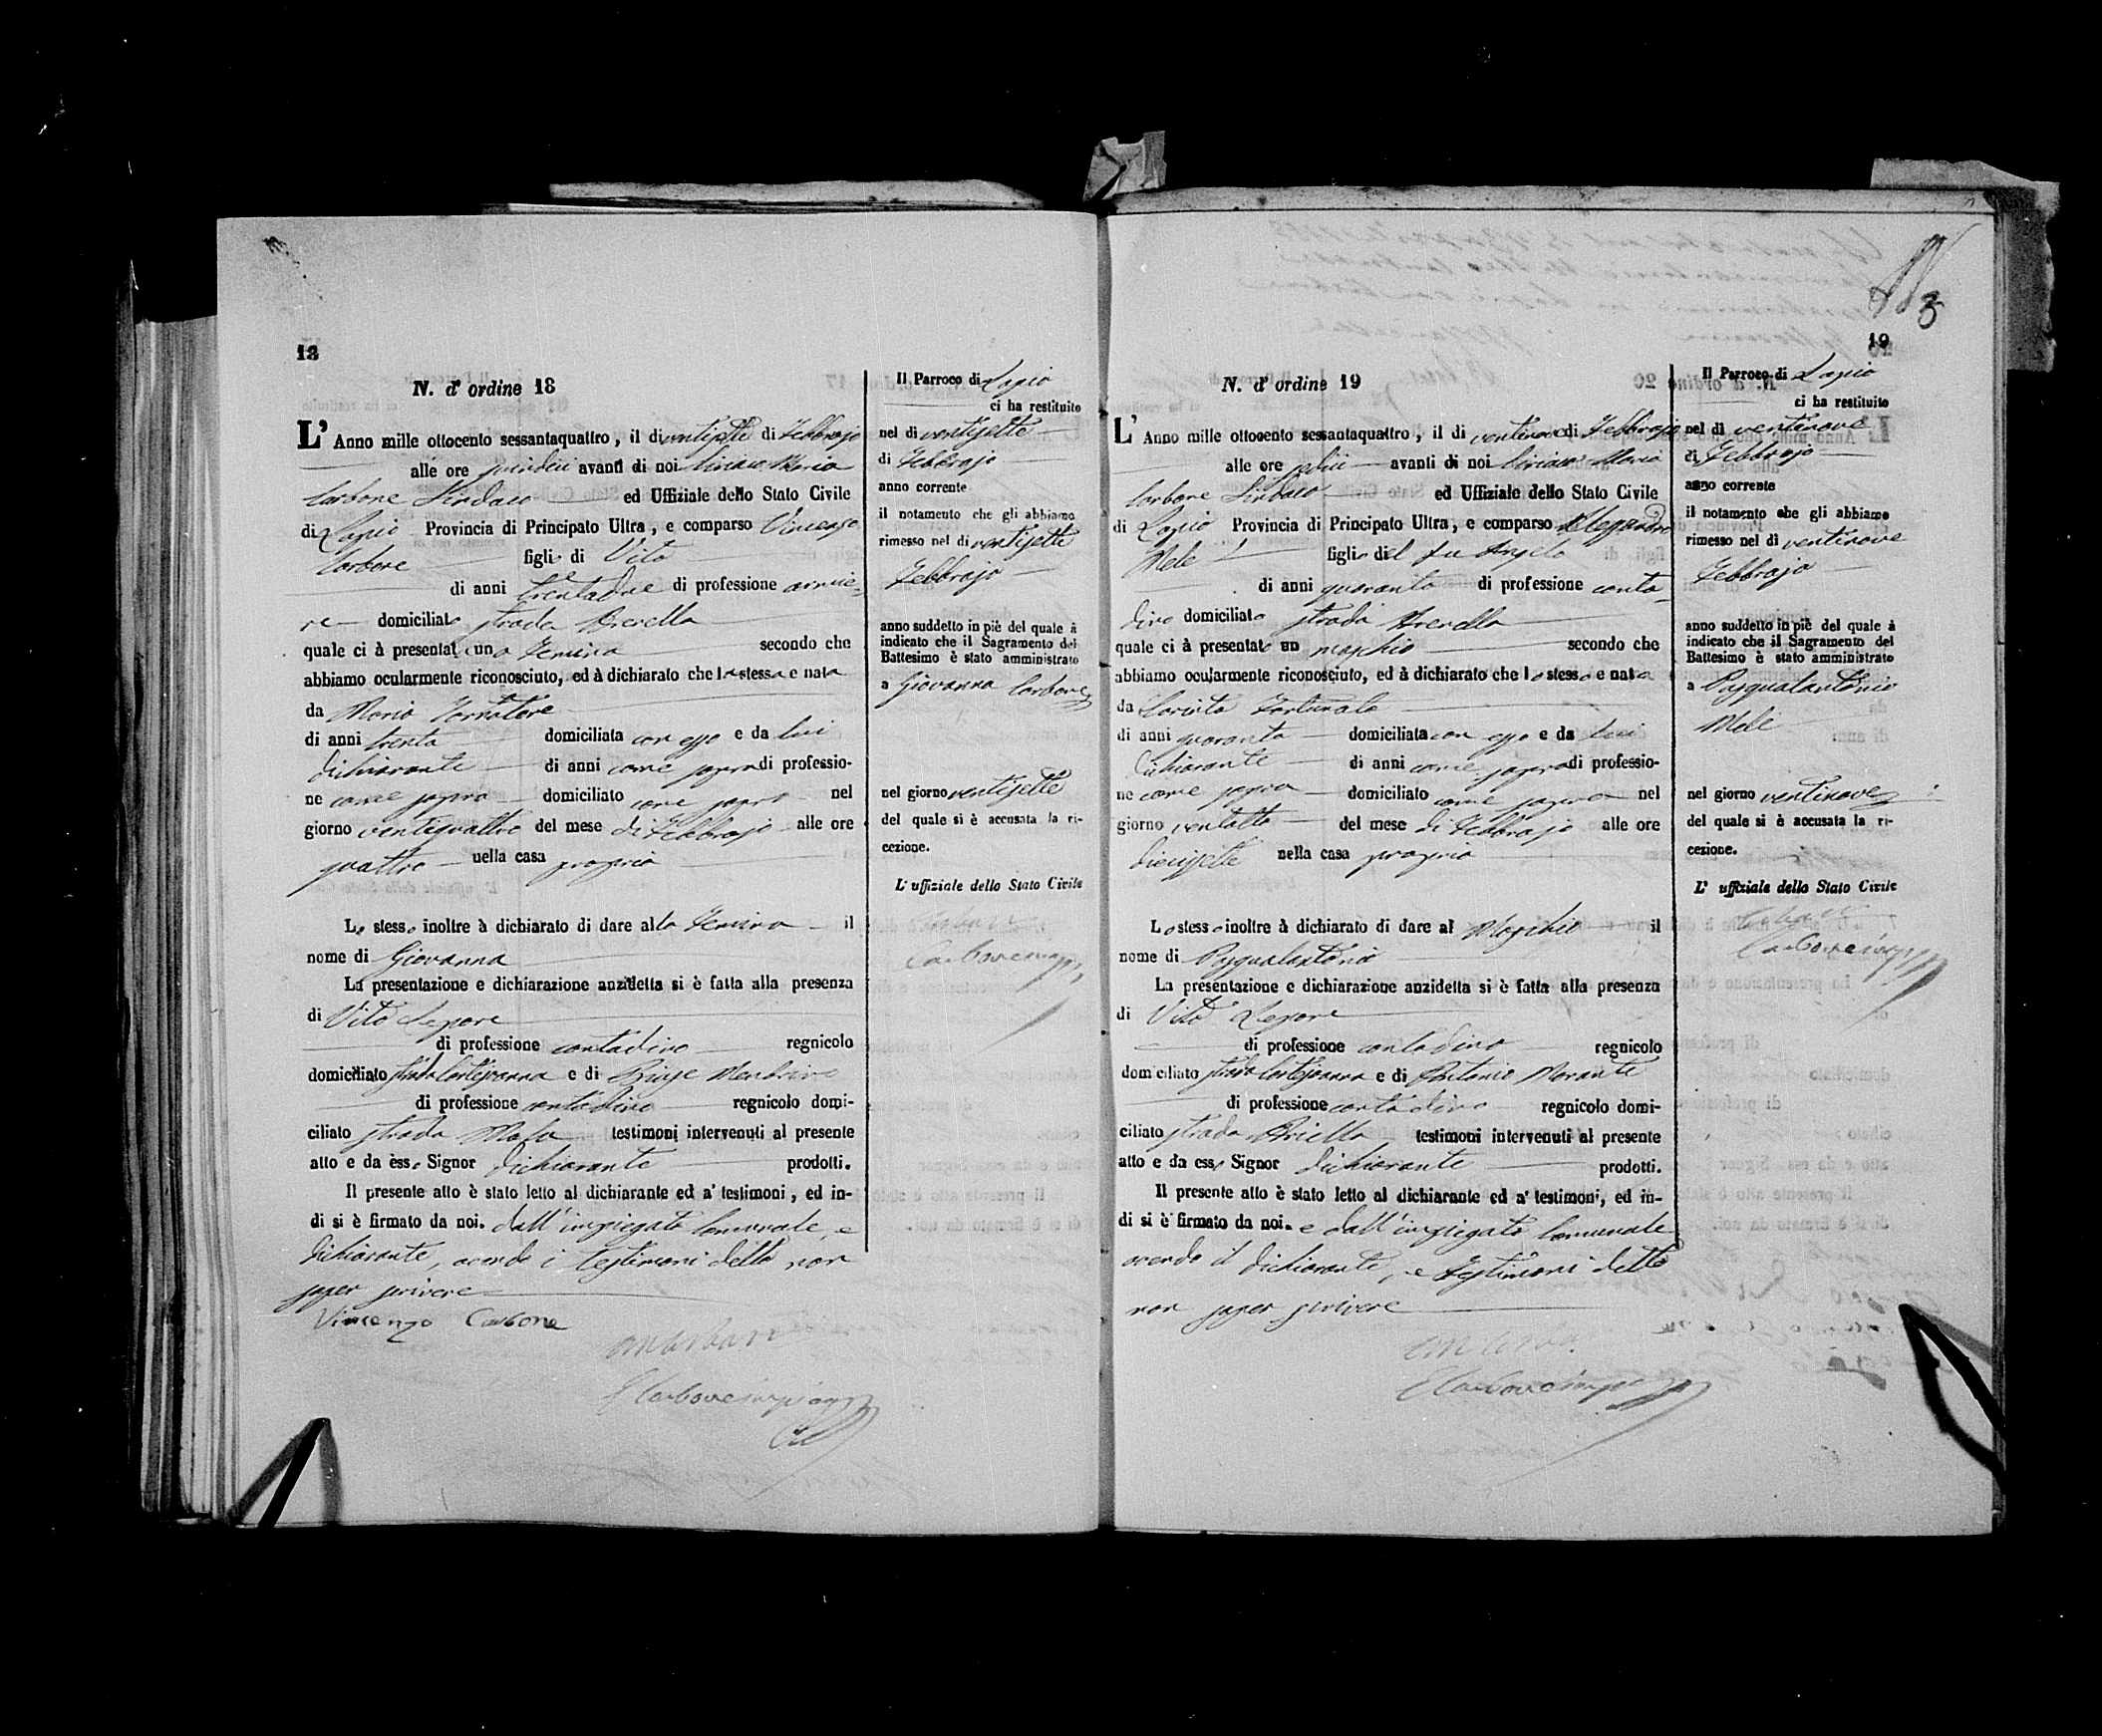 18
N. d' ordine 18
L' Anno mille ottocento sessantaquattro, il di ventisette di Febbrajo
alle ore quindici avanti di noi Ciriaco Maria
Carbone Sindaco ed Uffiziale dello Stato Civile
di Lapio Provincia di Principato Ultra, e comparso Vincenzo
Carbone figlio di Vito
di anni trentadue di professione
domiciliato strada
quale ci à presentat una Femina secondo che
abbiamo ocularmente riconosciuto, ed à dichiarato che la stessa e nata
da Maria
di anni trenta domiciliata con esso e da lui
dichiarante di anni come sopra di professio-
ne come sopra domiciliato come sopra nel
giorno ventiquattro del mese di Febbrajo alle ore
quattro nella casa propria
Lo stesso inoltre à dichiarato di dare alla Femina il
nome di Giovanna
La presentazione e dichiarazione anzidetta si è fatta alla presenza
di Vito Lepore
di professione contadino regnicolo
domiciliato strada Cortejoanna e di Biase
di professione contadino regnicolo domi-
ciliato strada testimoni intervenuti al presente
atto e da esso Signor dichiarante prodotti.
Il presente atto è stato letto al dichiarante ed a' testimoni, ed in-
di si è firmato da noi. dall'impiegato Comunale, e
dichiarante, avendo i testimoni detto non
saper scrivere
Vincenzo Carbone
Il Parroco di Lapio
ci ha restituito
nel di ventisette
di Febbrajo
anno corrente
il notamento che gli abbiamo
rimesso nel di ventisette
Febbrajo
anno suddetto in piè del quale à
indicato che il Sagramento del
Battesimo è stato amministrato
a Giovanna Carbone
nel giorno ventisette
del quale si è accusata la ri-
cezione.
L' uffiziale dello Stato Civile
3
19
N. d' ordine 19
L' Anno mille ottocento sessantaquattro, il di ventinove di Febbrajo
alle ore avanti di noi Ciriaco Maria
Carbone Sindaco ed Uffiziale dello Stato Civile
di Lapio Provincia di Principato Ultra, e comparso Alessandro
Mele figlio del fu Angelo
di anni quaranta di professione conta-
dino domiciliato strada
quale ci à presentato un maschio secondo che
abbiamo ocularmente riconosciuto, ed à dichiarato che lo stesso e nato
da Carmela Fortunato
di anni quaranta domiciliata con esso e da lui
dichiarante di anni come sopra di professio-
ne come sopra domiciliato come sopra nel
giorno ventotto del mese di Febbrajo alle ore
diecisette nella casa propria
Lo stesso inoltre à dichiarato di dare al Maschio il
nome di Pasqualantonio
La presentazione e dichiarazione anzidetta si è fatta alla presenza
di Vito Lepore
di professione contadino regnicolo
domiciliato strada Cortejoanna e di Antonio Morante
di professione contadino regnicolo domi-
ciliato strada testimoni intervenuti al presente
atto e da esso Signor dichiarante prodotti.
Il presente atto è stato letto al dichiarante ed a' testimoni, ed in-
di si è firmato da noi. e dall'impiegato Comunale
avendo il dichiarante, e testimoni detto
non saper scrivere
Il Parroco di Lapio
ci ha restituito
nel di ventinove
di Febbrajo
anno corrente
il notamento che gli abbiamo
rimesso nel di ventinove
Febbrajo
anno suddetto in piè del quale à
indicato che il Sagramento del
Battesimo è stato amministrato
a Pasqualantonio
Mele
nel giorno ventinove
del quale si è accusata la ri-
cezione.
L' uffiziale dello Stato Civile